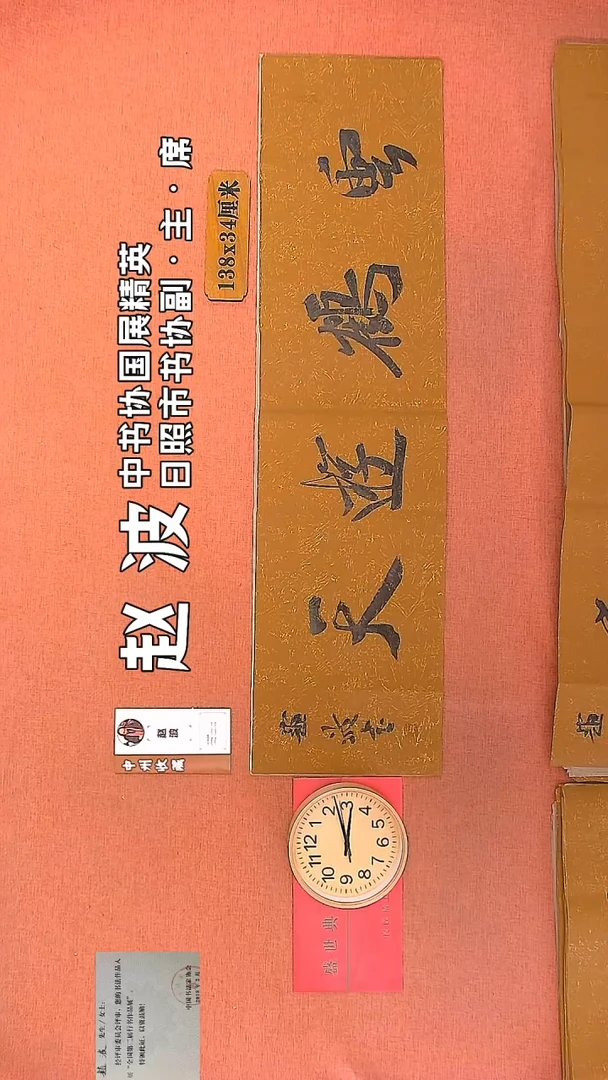 赵波
中书协国展精英
日照市书协副·主·席
138x34厘米
雲鶴遊天
趙波書
赵波
中州收藏
盛世典
12
1
2
3
4
5
6
7
8
9
10
11
先生/女士:
经评审委员会评审,您的书法作品入
展
特颁此证,以资鼓励!
中国书法家协会